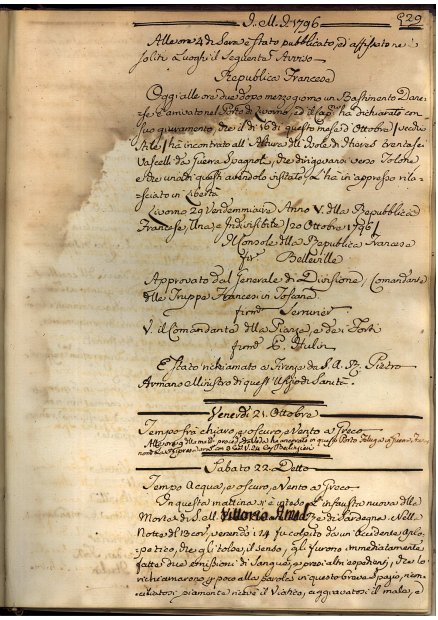 I. M. I. 1796
629
Alle ore 4 di Sera è stato pubblicato, ed affissato ne
soliti Luoghi il seguente Avviso
Republica Francese
Oggi alle ore due dopo mezzogiorno un Bastimento Dane
se è arrivato nel Porto di Livorno, ed il Cap.° ha dichiarato con
suo giuramento, che il dì 16 di questo mese d'Ottobre (vecchio
stile) ha incontrato all'Altura dell'Isole di Hieres trentasei
Vascelli da Guerra Spagnoli, che dirigevansi verso Tolone
e che uno di questi avendolo visitato, l'ha in appresso rila-
sciato in libertà
Livorno 29 Vendemmiaire Anno V. della Repubblica
Francese, Una, e Indivisibile (20 Ottobre 1796)
Il Console della Republica Francese
Belleville
Approvato dal Generale di Divisione, Comandante
delle Truppe Francesi in Toscana
firm.° Serruier
V. il Comandante della Piazza, e de i Forti
firm.° E. Hulin
E stato richiamato a Firenze da S. A. R. Pietro
Armano Ministro di quest'Ufizio di Sanità.
Venerdì 21. Ottobre
Tempo frà chiaro, e oscuro, e Vento a Greco
Sabato 22. Detto
Tempo Acqua, e oscuro, e Vento a Greco
In questa mattina s'è intesa l'infausta nuova della
Morte di S. M. Vittorio Am. Rè di Sardegna. Nella
Notte del 13 venendo i 14 fu colpito da un'Accidente Aplo-
petico, che gli tolse il senso, gli furono immediatamente
fatte due emissioni di Sangue, e varj altri espedienti, che lo
richiamarono, e poco alla parola in questo breve spazio, ricon-
ciliatosi piamente ricevè il Viatico, aggravatosi il male, e